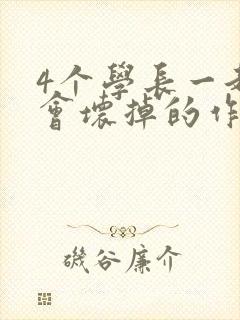 4个學長一
會壞掉的作
磯谷廉介